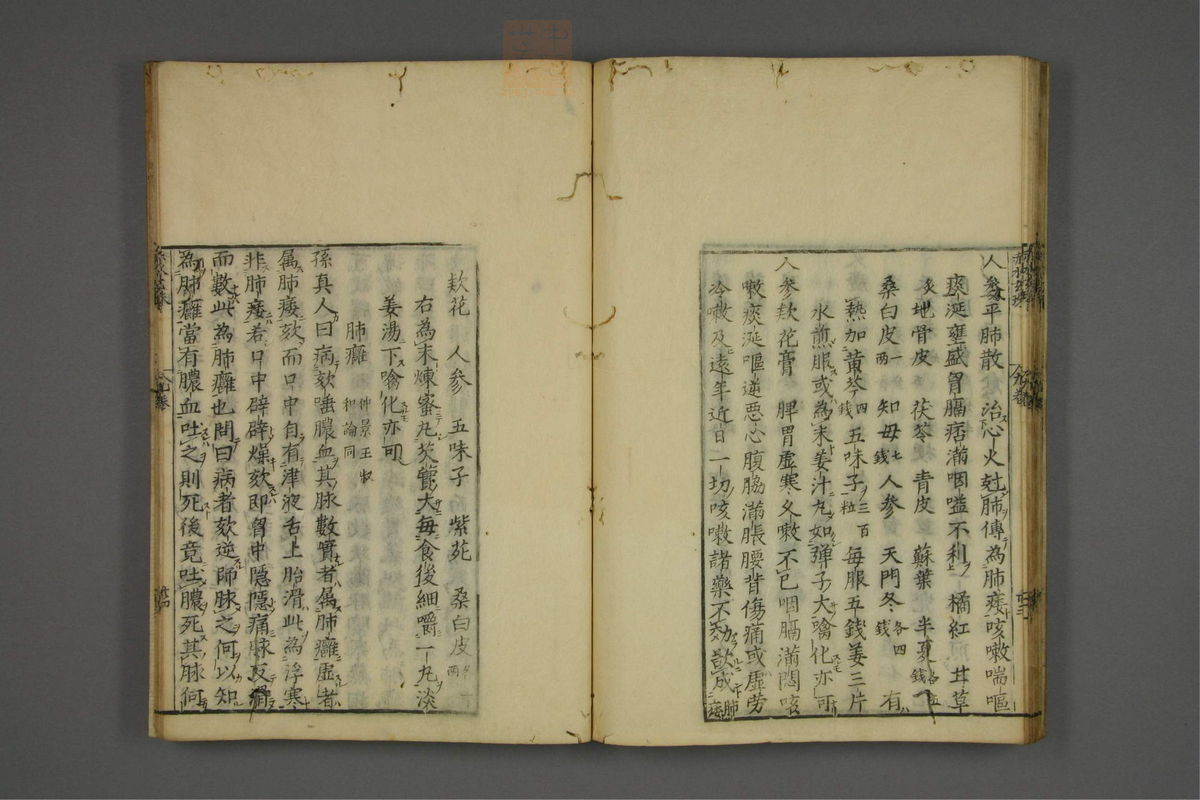 人參平肺散 治心火尅肺傳為肺痿咳嗽喘嘔
痰涎壅盛胷膈痞滿咽嗌不利 橘紅 甘草
炙 地骨皮 茯苓 青皮 蘇葉 半夏各五錢
桑白皮一兩 知母七錢 人參 天門冬各四錢 有
熱加黄芩四錢 五味子三百粒 每服五錢姜三片
水煎服或為末姜汁丸如弹子大噙化亦可
人參欵花膏 脾胃虚寒久嗽不已咽膈滿悶咳
嗽痰涎嘔逆惡心腹脇滿脹腰背傷痛或虚劳
冷嗽及遠年近日一切咳嗽諸藥不効欲成肺痿
欵花 人參 五味子 紫苑 桑白皮
右為末煉蜜丸芡大每食後細嚼一丸淡
姜湯下噙化亦可
肺癰 仲景王叔和論同
孫真人曰病欬唾膿血其脉數實者属肺癰虚者
属肺痿欬而口中自有津液舌上胎滑此為浮寒
非肺痿若口中辟辟燥欬即胷中隱隱痛脉反滑
而數此為肺癰也問曰病者欬逆師脉之何以知
為肺癰當有膿血吐之則死後竟吐膿死其脉何